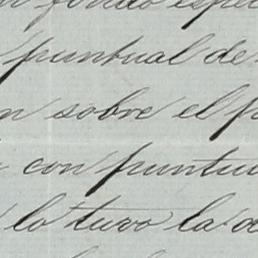 fondo espe
puntual de
n sobre el p
con puntu
lo tuvo la a